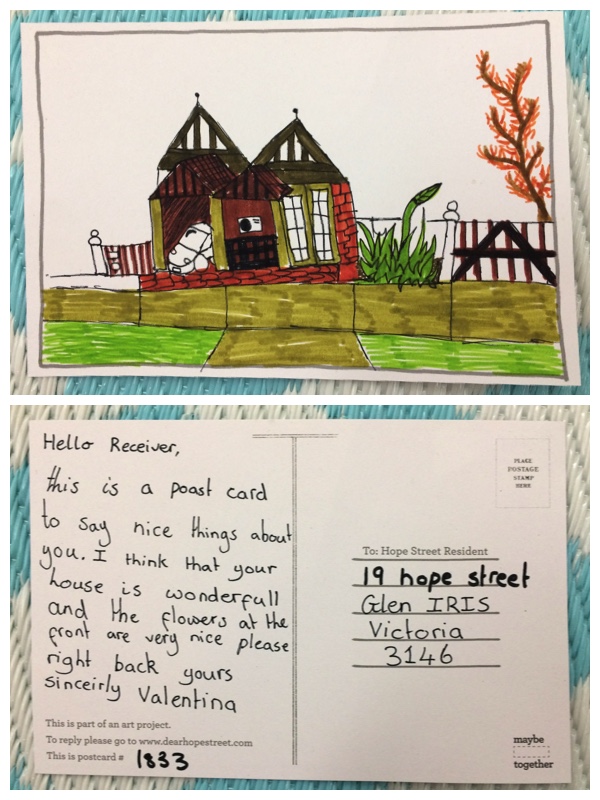 Hello Receiver,
this is a poast card
to say nice things about
you. I think that your
house is wonderfull
and the flowers at the
front are very nice please
right back yours
sinceirly Valentina
This is part of an art project.
To reply please go to www.dearhopestreet.com
This is postcard # 1833
PLACE
POSTAGE
STAMP
HERE
To: Hope Street Resident
19 hope street
Glen IRIS
Victoria
3146
maybe
together